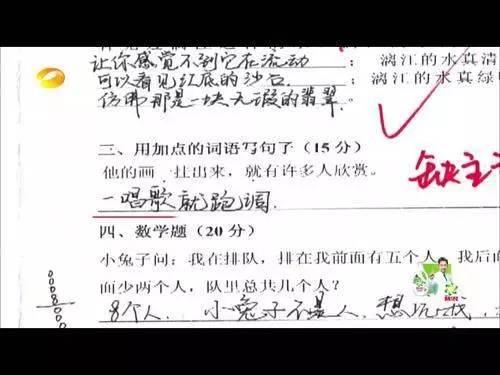 让你感觉不到它在流动 ; 漓江的水真清
可以看见江底的沙石 ; 漓江的水真绿
仿佛那是一块无瑕的翡翠。
三、用加点的词语写句子(15分)
他的画一挂出来,就有许多人欣赏。
一唱歌就跑调 缺主
四、数学题(20分)
小兔子问:我在排队,排在我前面有五个人,我后面
面少两个人,队里总共几个人?
8个人. 小兔子不是人. 想坑我.